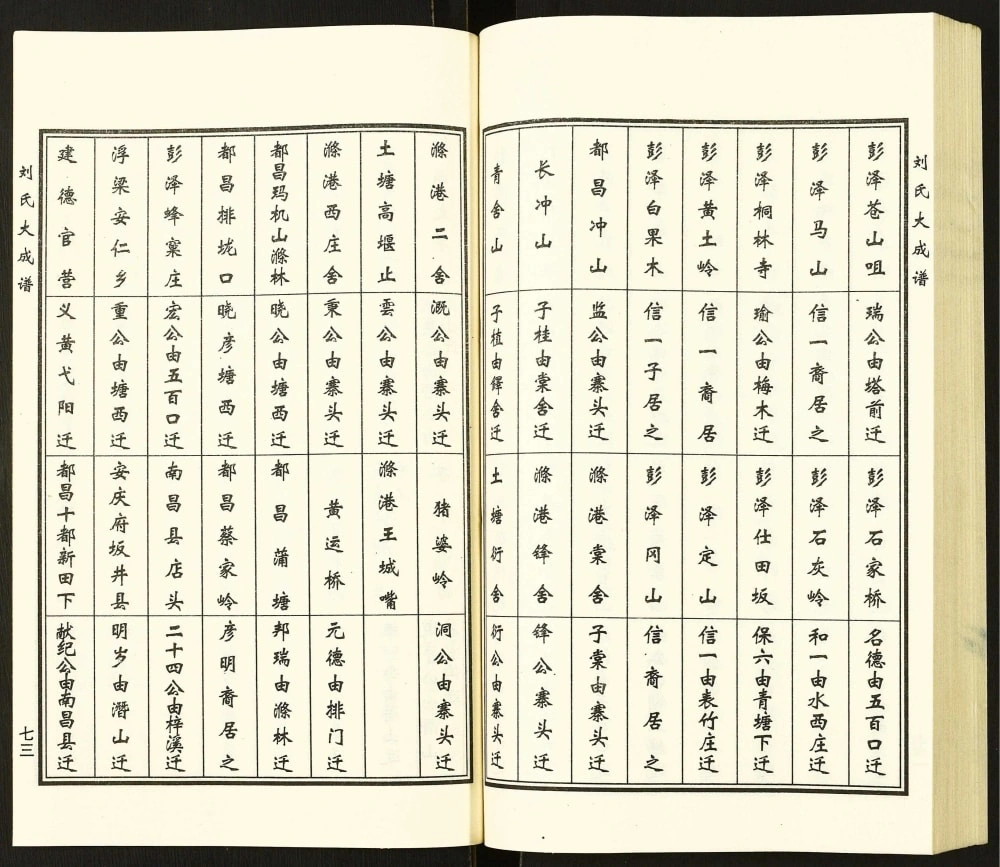 刘氏大成谱
彭泽苍山咀
瑞公由塔前迁
彭泽石家桥
名德由五百口迁
彭泽马山
信一裔居之
彭泽石灰岭
和一由水西庄迁
彭泽桐林寺
瑜公由梅木迁
彭泽仕田坂
保六由青塘下迁
彭泽黄土岭
信一裔居
彭泽定山
信一由表竹庄迁
彭泽白果木
信一子居之
彭泽冈山
信裔居之
都昌冲山
监公由寨头迁
滌港棠舍
子棠由寨头迁
长冲山
子桂由棠舍迁
滌港锋舍
锋公寨头迁
青舍山
子植由铎舍迁
土塘衍舍
衍公由寨头迁
滌港二舍
溉公由寨头迁
猪婆岭
洞公由寨头迁
土塘高堰止
雲公由寨头迁
滌港王城嘴
滌港西庄舍
秉公由寨头迁
黄运桥
元德由排门迁
都昌玛机山滌林
晓公由塘西迁
都昌蒲塘
邦瑞由滌林迁
都昌排垅口
晓彦塘西迁
都昌蔡家岭
彦明裔居之
彭泽蜂窠庄
宏公由五百口迁
南昌县店头
二十四公由梓溪迁
浮梁安仁乡
重公由塘西迁
安庆府坂井县
明岁由潛山迁
建德官营
义黄弋阳迁
都昌十都新田下
献纪公由南昌县迁
刘氏大成谱
七三